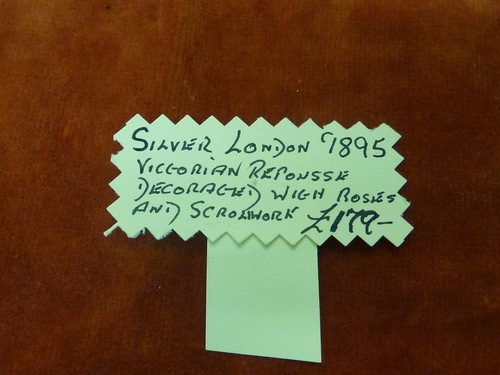 SILVER LONDON '1895
VICTORIAN REPOUSSE
DECORATED WITH ROSES
AND SCROLLWORK £179-